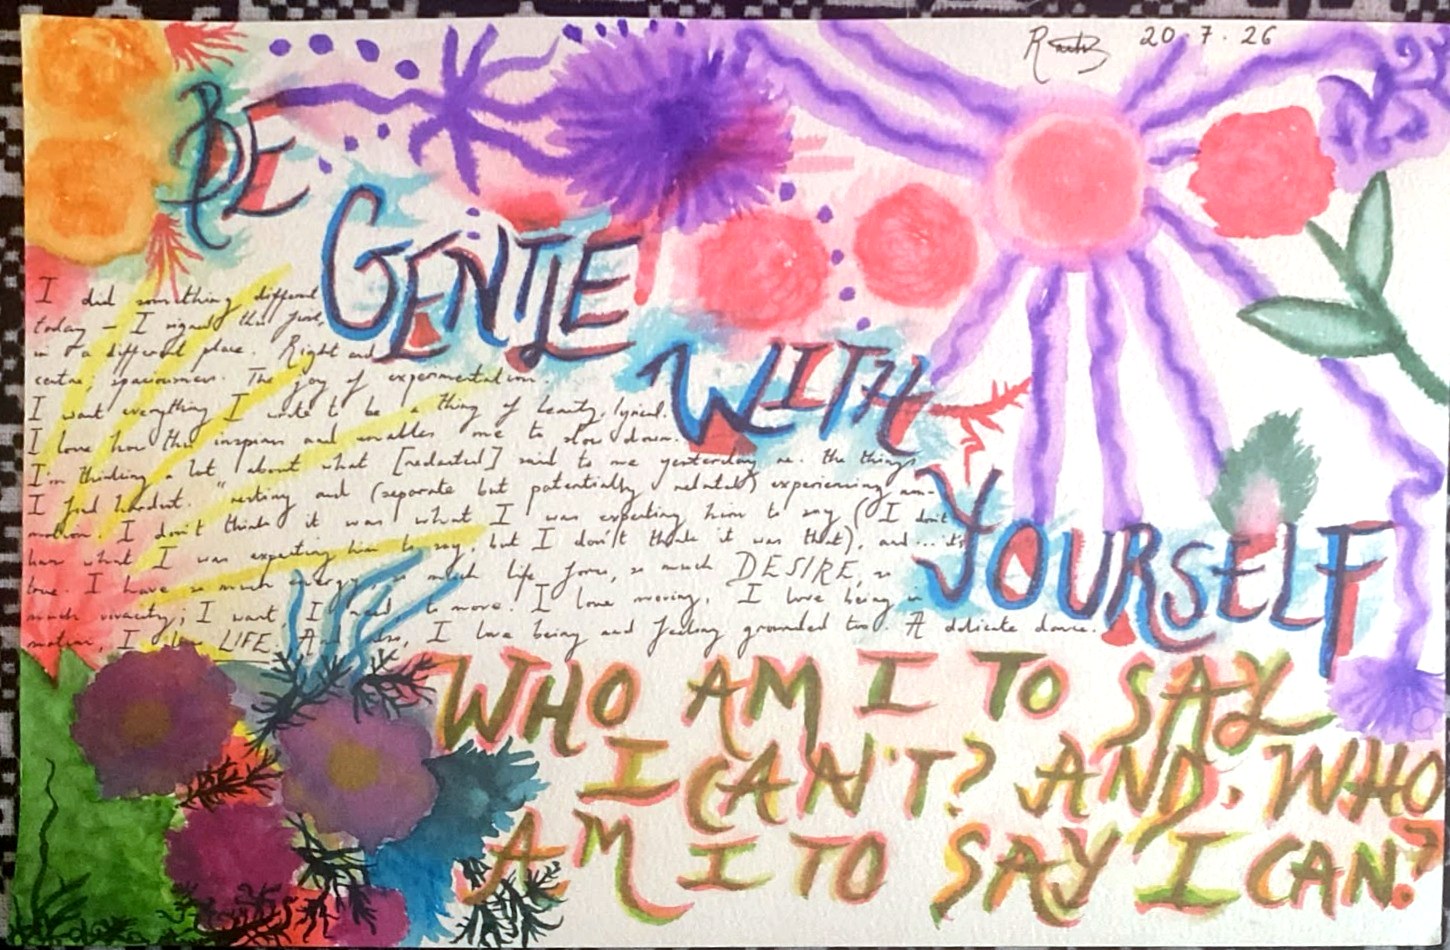 20.7.26
BE
GENTLE
WITH
YOURSELF
I did something different
today – I signed this first,
in a different place. Right and
centre; spaciousness. The joy of experimentation.
I want everything I write to be a thing of beauty, lyrical.
I love how this inspires and enables me to slow down.
I'm thinking a lot about what [redacted] said to me yesterday re. the things
I find hardest. "resting and (separate but potentially related) experiencing ani-
mation. I don't think it was what I was expecting him to say (I don't
know what I was expecting him to say, but I don't think it was that), and... it's
true. I have so much energy, so much life force, so much DESIRE, so
much vivacity; I want, I need to move. I love moving, I love being in
motion, I love LIFE. And also, I love being and feeling grounded too. A delicate dance.
WHO AM I TO SAY
I CAN'T? AND, WHO
AM I TO SAY I CAN?